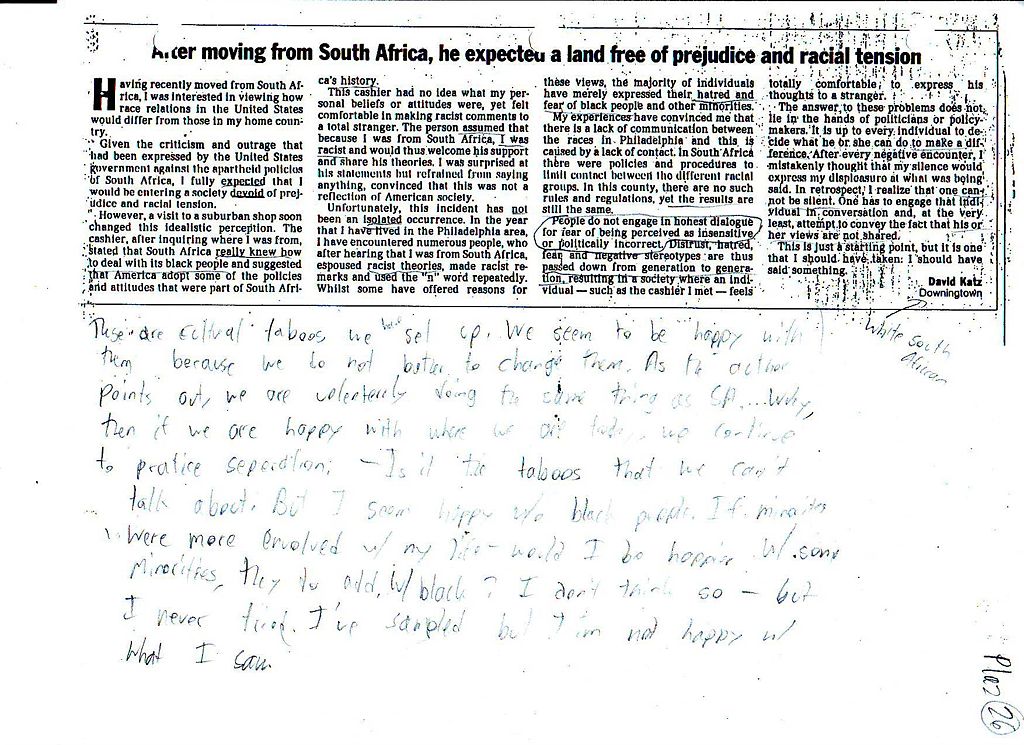 After moving from South Africa, he expected a land free of prejudice and racial tension
Having recently moved from South Af-
rica, I was interested in viewing how
race relations in the United States
would differ from those in my home coun-
try.
Given the criticism and outrage that
had been expressed by the United States
government against the apartheid policies
of South Africa, I fully expected that I
would be entering a society devoid of prej-
udice and racial tension.
However, a visit to a suburban shop soon
changed this idealistic perception. The
cashier, after inquiring where I was from,
stated that South Africa really knew how
to deal with its black people and suggested
that America adopt some of the policies
and attitudes that were part of South Afri-
ca's history.
This cashier had no idea what my per-
sonal beliefs or attitudes were, yet felt
comfortable in making racist comments to
a total stranger. The person assumed that
because I was from South Africa, I was
racist and would thus welcome his support
and share his theories. I was surprised at
his statements but refrained from saying
anything, convinced that this was not a
reflection of American society.
Unfortunately, this incident has not
been an isolated occurrence. In the year
that I have lived in the Philadelphia area,
I have encountered numerous people, who
after hearing that I was from South Africa,
espoused racist theories, made racist re-
marks and used the "n" word repeatedly.
Whilst some have offered reasons for
these views, the majority of individuals
have merely expressed their hatred and
fear of black people and other minorities.
My experiences have convinced me that
there is a lack of communication between
the races in Philadelphia and this is
caused by a lack of contact. In South Africa
there were policies and procedures to
limit contact between the different racial
groups. In this county, there are no such
rules and regulations, yet the results are
still the same.
People do not engage in honest dialogue
for fear of being perceived as insensitive
or politically incorrect. Distrust, hatred,
fear and negative stereotypes are thus
passed down from generation to genera-
tion, resulting in a society where an indi-
vidual — such as the cashier I met — feels
totally comfortable, to express his
thoughts to a stranger.
The answer to these problems does not
lie in the hands of politicians or policy-
makers. It is up to every individual to de-
cide what he or she can do to make a dif-
ference. After every negative encounter, I
mistakenly thought that my silence would
express my displeasure at what was being
said. In retrospect, I realize that one can-
not be silent. One has to engage that indi-
vidual in conversation and, at the very
least, attempt to convey the fact that his or
her views are not shared.
This is just a starting point, but it is one
that I should have taken: I should have
said something.
David Katz
Downingtown
White South
African
These are cultural taboos we have set up. We seem to be happy with
them because we do not bother to change them. As the author
points out, we are volenterely doing the same thing as SA... Why,
then if we are happy with where we are today, we continue
to pratice seperation; – Is it the taboos that we can't
talk about. But I seem happy w/o black people. If minorites
were more envolved w/ my life – would I be happier w/ some
minorities, they to add w/ black? I don't think so – but
I never tired. I've sampled but I'm not happy w/
what I saw
26